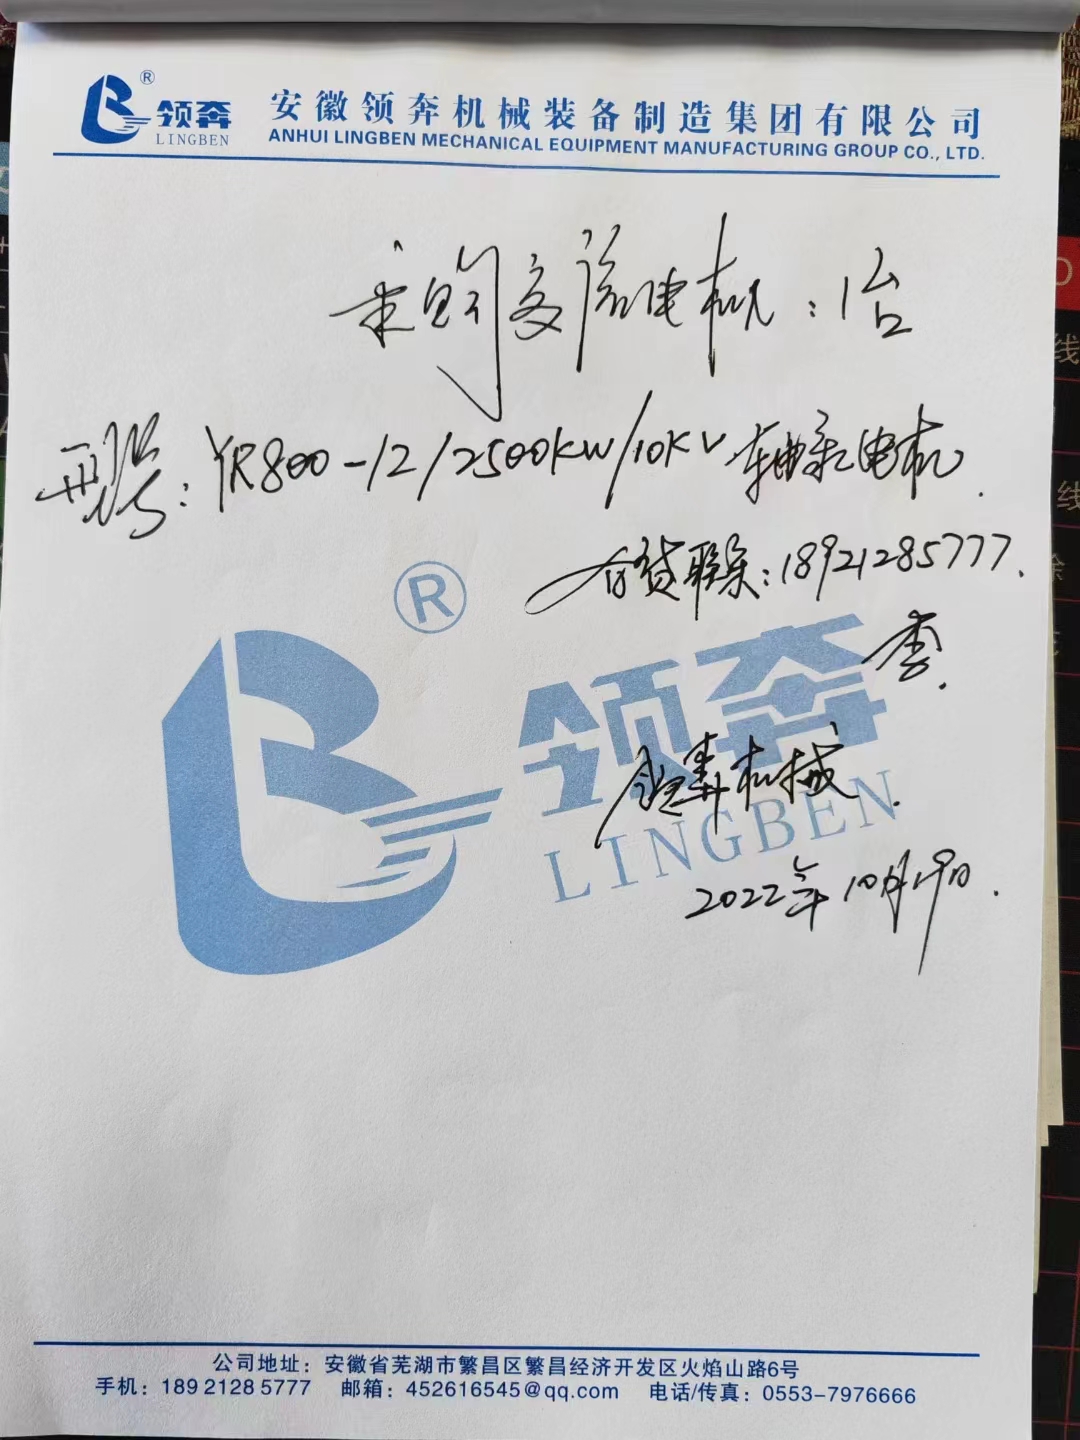 ® 领奔 LINGBEN
安徽领奔机械装备制造集团有限公司
ANHUI LINGBEN MECHANICAL EQUIPMENT MANUFACTURING GROUP CO., LTD.
采购交流电机：1台
型号：YR800-12/2500KW/10KV 轴承电机.
有货联系：18921285777.
李.
领奔机械.
2022年10月19日.
®
领奔
LINGBEN
公司地址：安徽省芜湖市繁昌区繁昌经济开发区火焰山路6号
手机：189 2128 5777 邮箱：452616545@qq.com 电话/传真：0553-7976666